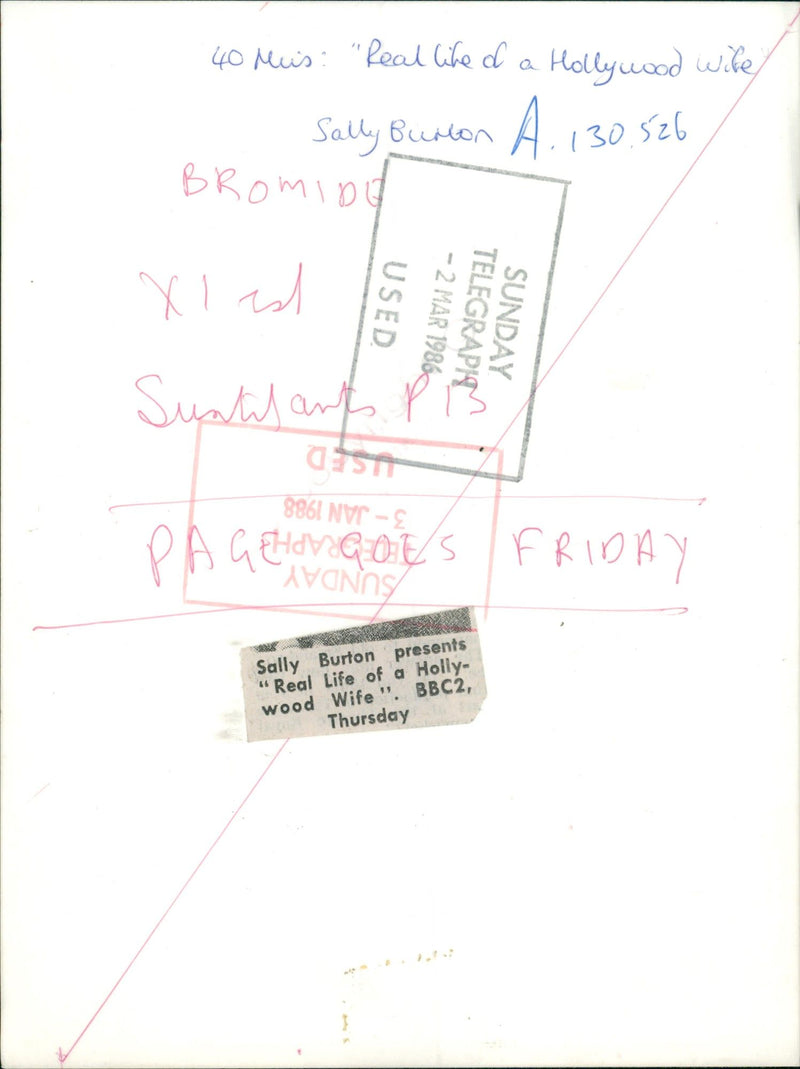 40 Mins: "Real life of a Hollywood Wife"
Sally Burton A.130.526
BROMIDE
SUNDAY
TELEGRAPH
- 2 MAR 1986
USED
X1 col
P 13
USED
3 - JAN 1988
TELEGRAPH
SUNDAY
PAGE GOES FRIDAY
Sally Burton presents
"Real Life of a Holly-
wood Wife". BBC2,
Thursday